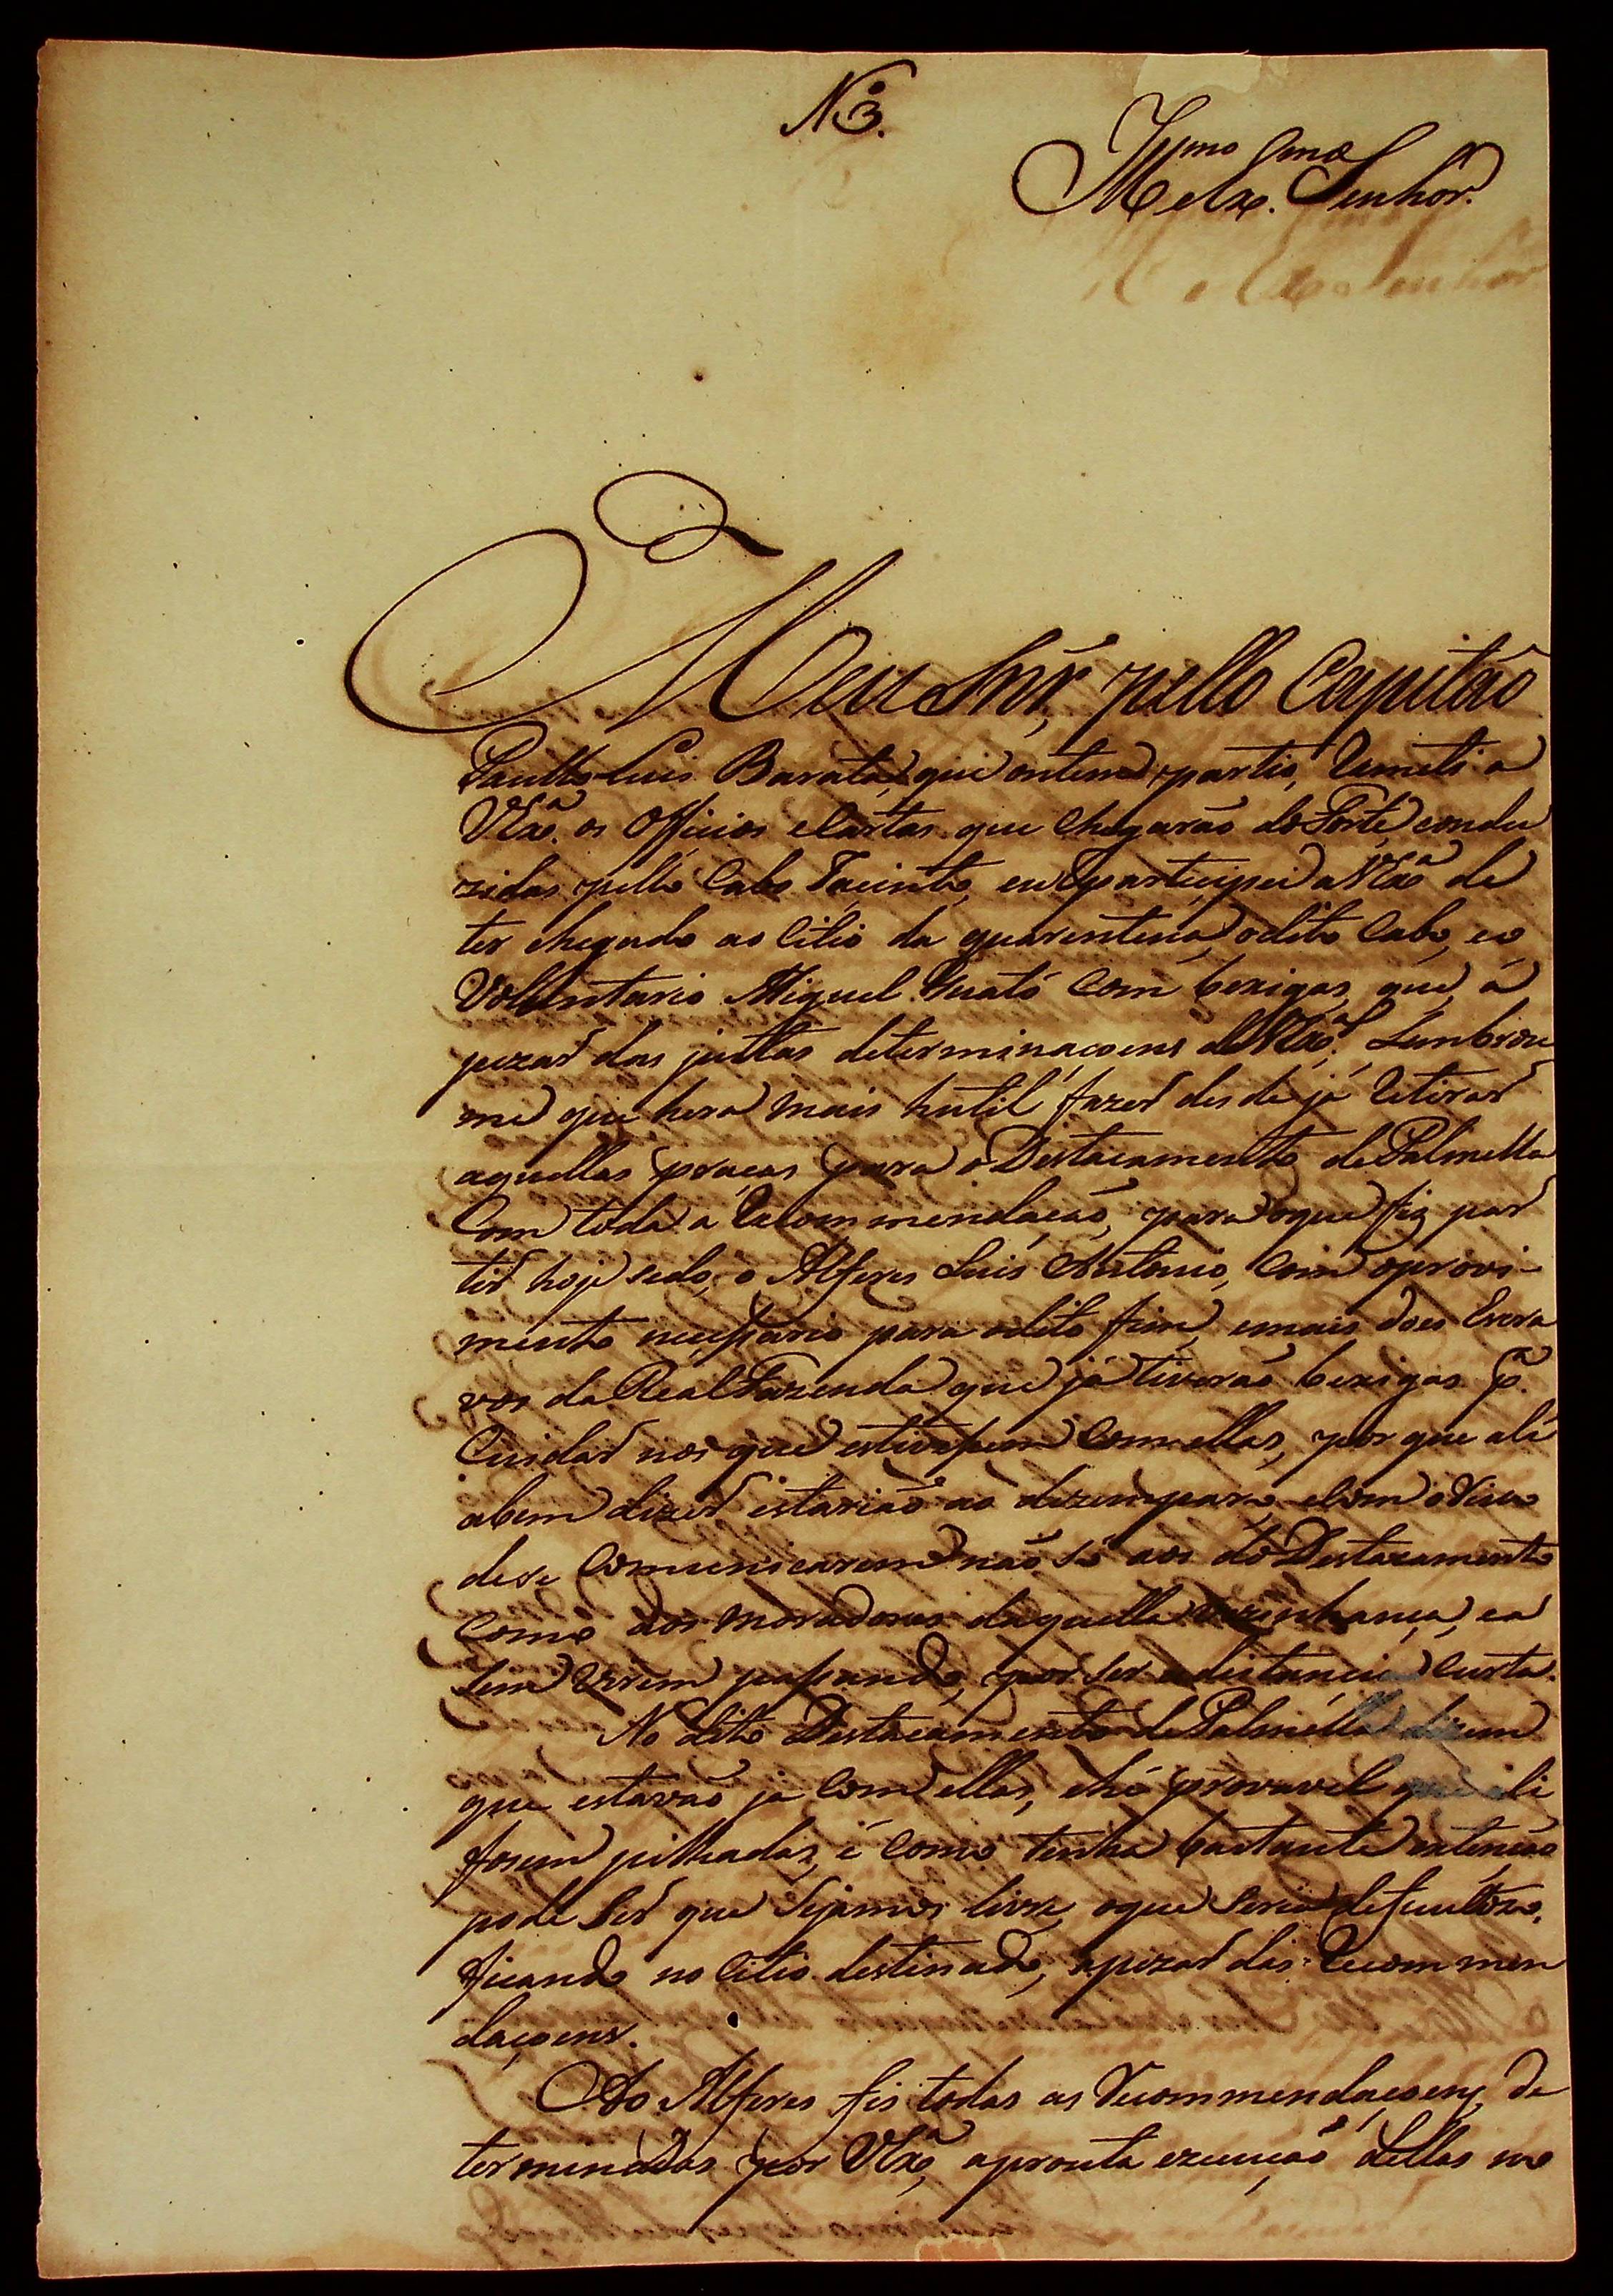 N 3.
Illmo e Exmo. Senhor.
Meu Snr, pello Capitão
Paullo Luis Barata, que ontem partio, remeti a
VExa. os Officios e Cartas que chegarão do Forte, condu
zidas pello Cabo Jacinto, eu participei a VExa de
ter chegado ao Citio da quarentena, o dito Cabo, e o
Voluntario Miguel com bexigas, que, a
pezar das justas determinaçoens de VExa. Lembrou
me que hera mais hutil fazer des de já retirar
aquellas praças para o Destacamento de Palmella
Com toda a recommendação, para o que fiz par
tir hoje sedo, o Alferes Luis Antonio, Com o provi-
mento necessario para o dito fim, e mais dois Escra
vos da Real Fazenda que já tiverão bexigas pa.
Cuidar nos que estivessem Com ellas, por que ali
abem dizer estarião ao dezemparo, e Com o risco
de se Comunicarem não só aos do Destacamento
Como aos moradores daquella vezinhança, e a
sim virem passando, por ser a distancia Curta.
No dito Destacamento de Palmella dizem
que estavão já Com ellas, e hé provavel que ali
fosem pilhadas, é Como tenha bastante extenção
pode ser que sejamos livre, o que seria defecultozo,
ficando no Citio destinado, apezar das recommen
daçoens.
Ao Alferes fis todas as recommendaçoens, de
termenadas por VExa, apronta execução dellas me